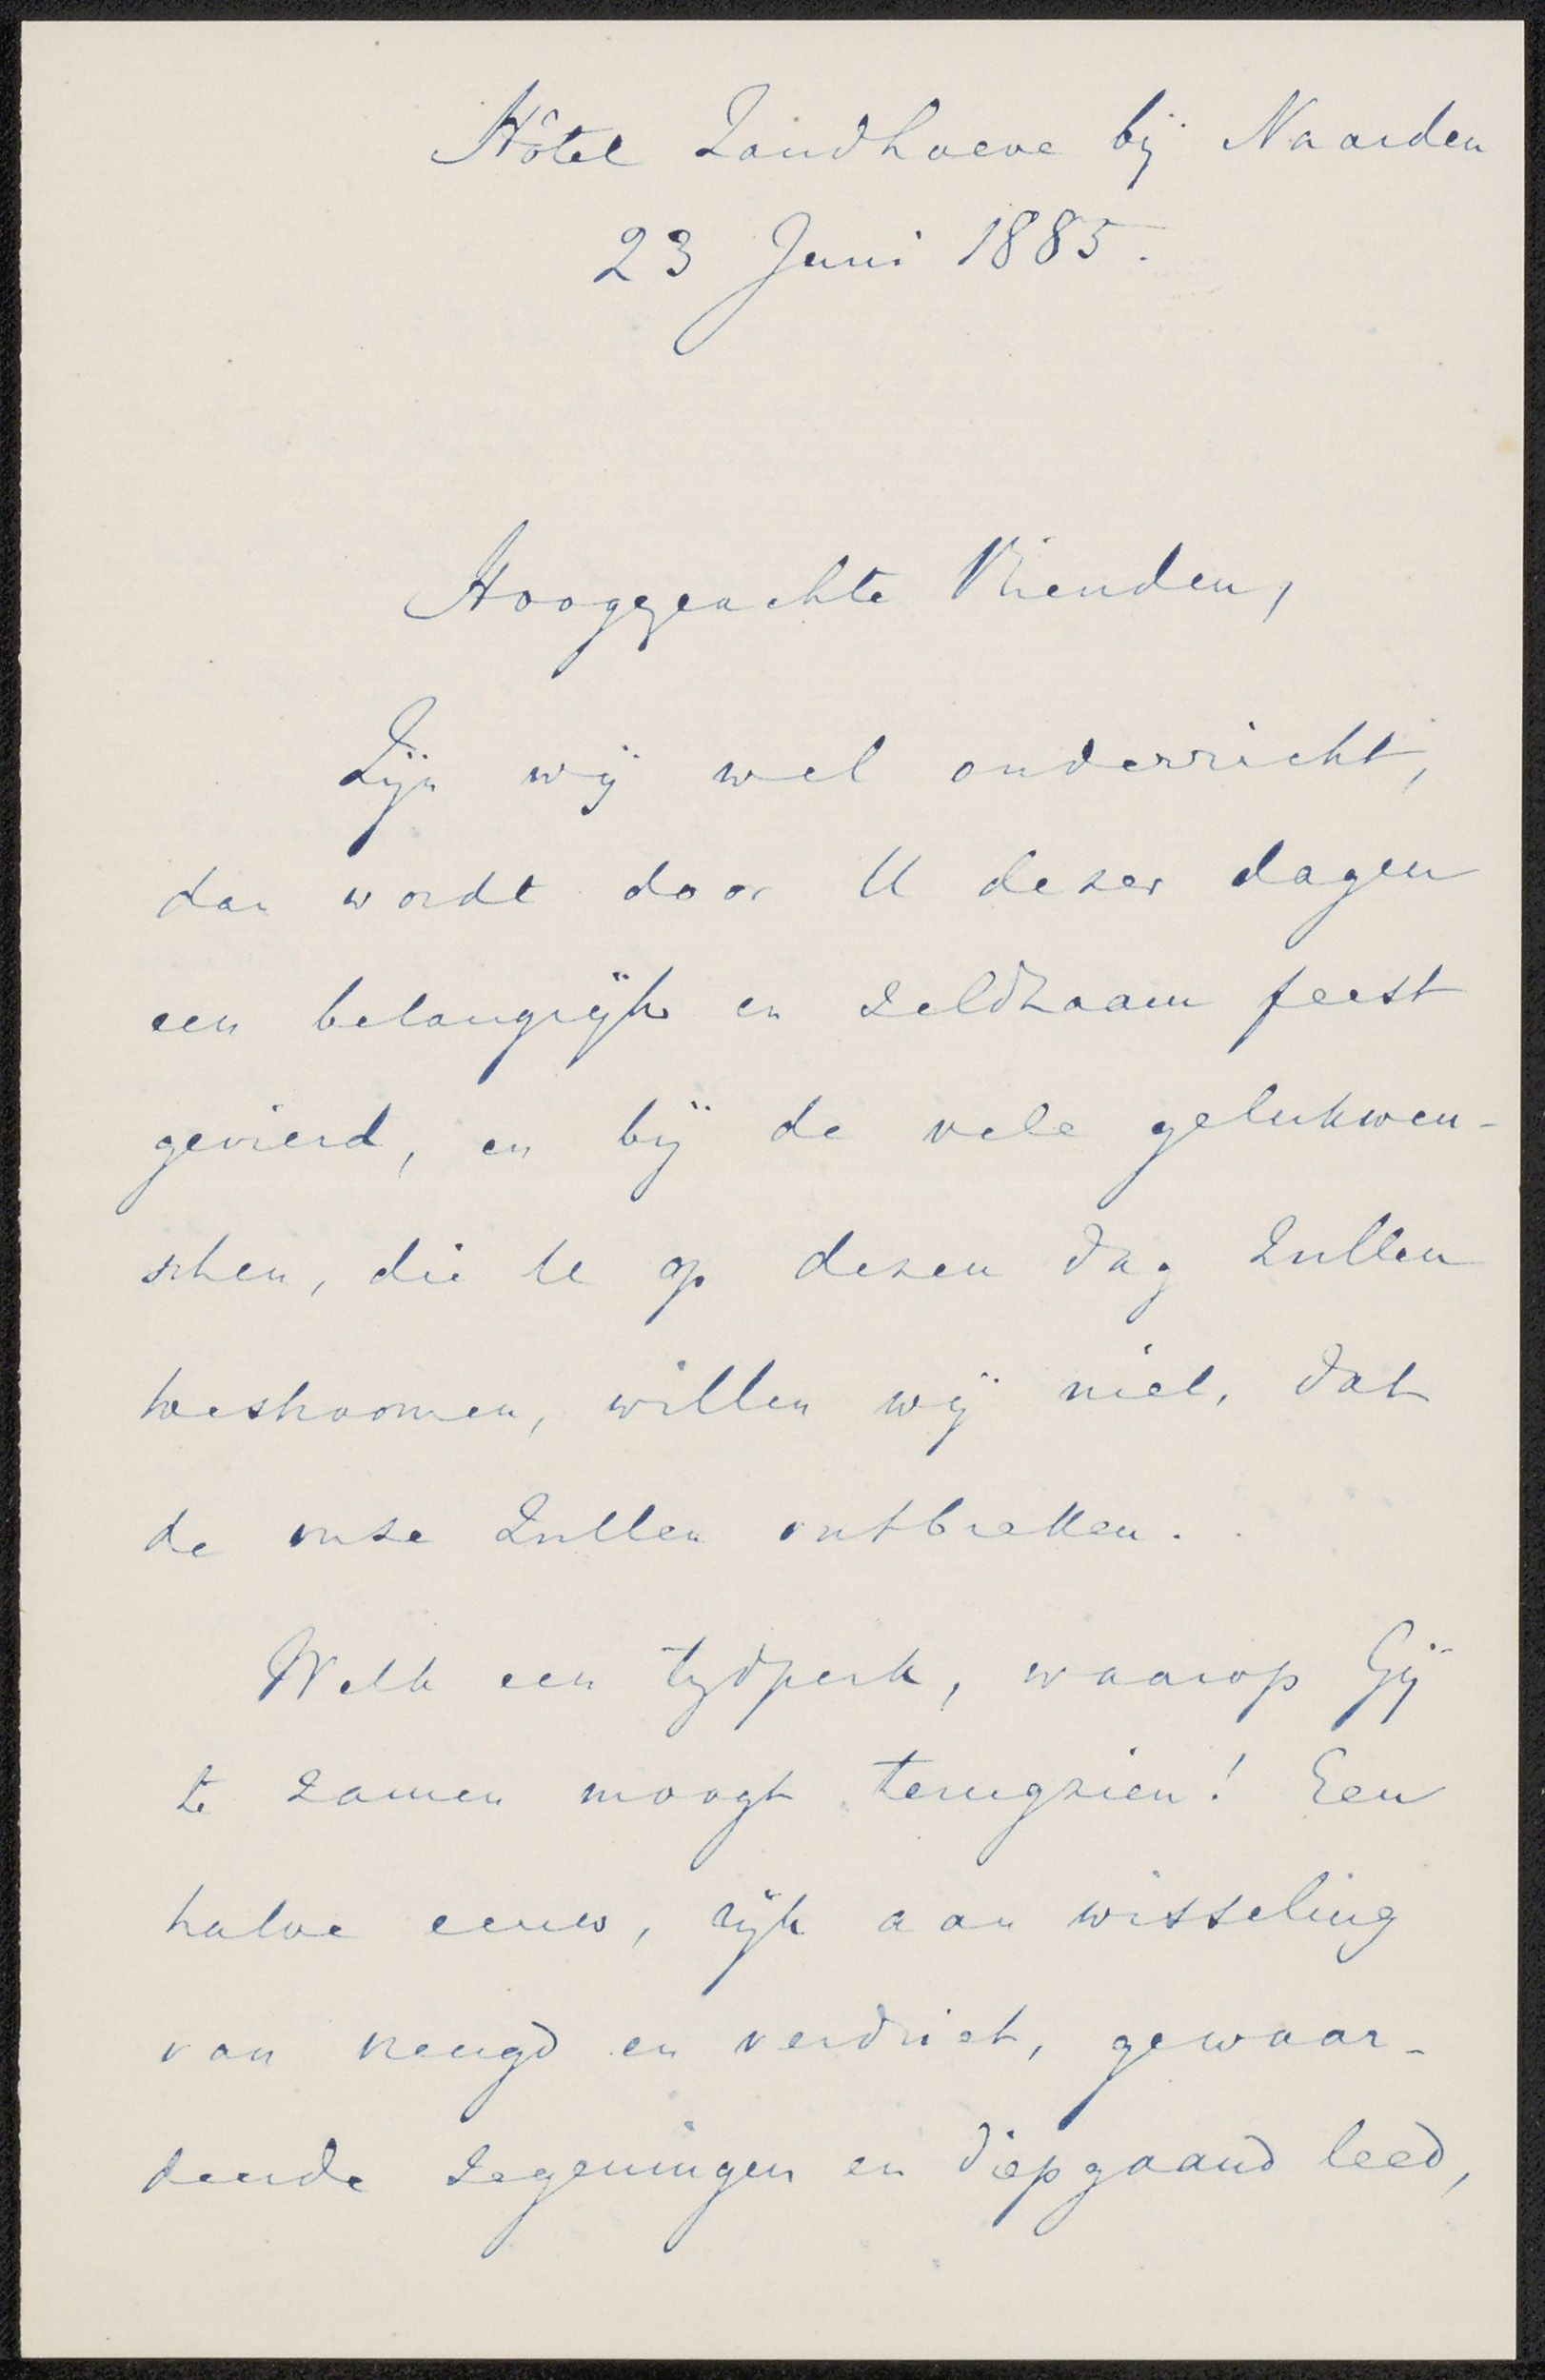 Hôtel Zandhoeve bij Naarden
23 Juni 1885.
Hooggeachte Vrienden,
Zijn wij wel onderricht,
dan wordt door U dezer dagen
een belangrijk en zeldzaam feest
gevierd, en bij de vele gelukwen-
schen, die U op dezen dag zullen
toestroomen, willen wij niet, dat
de onze zullen ontbreken.
Welk een tijdperk, waarop Gij
te zamen moogt terugzien! Een
halve eeuw, rijk aan wisseling
van vreugd en verdriet, gewaar-
deerde zegeningen en diepgaand leed,